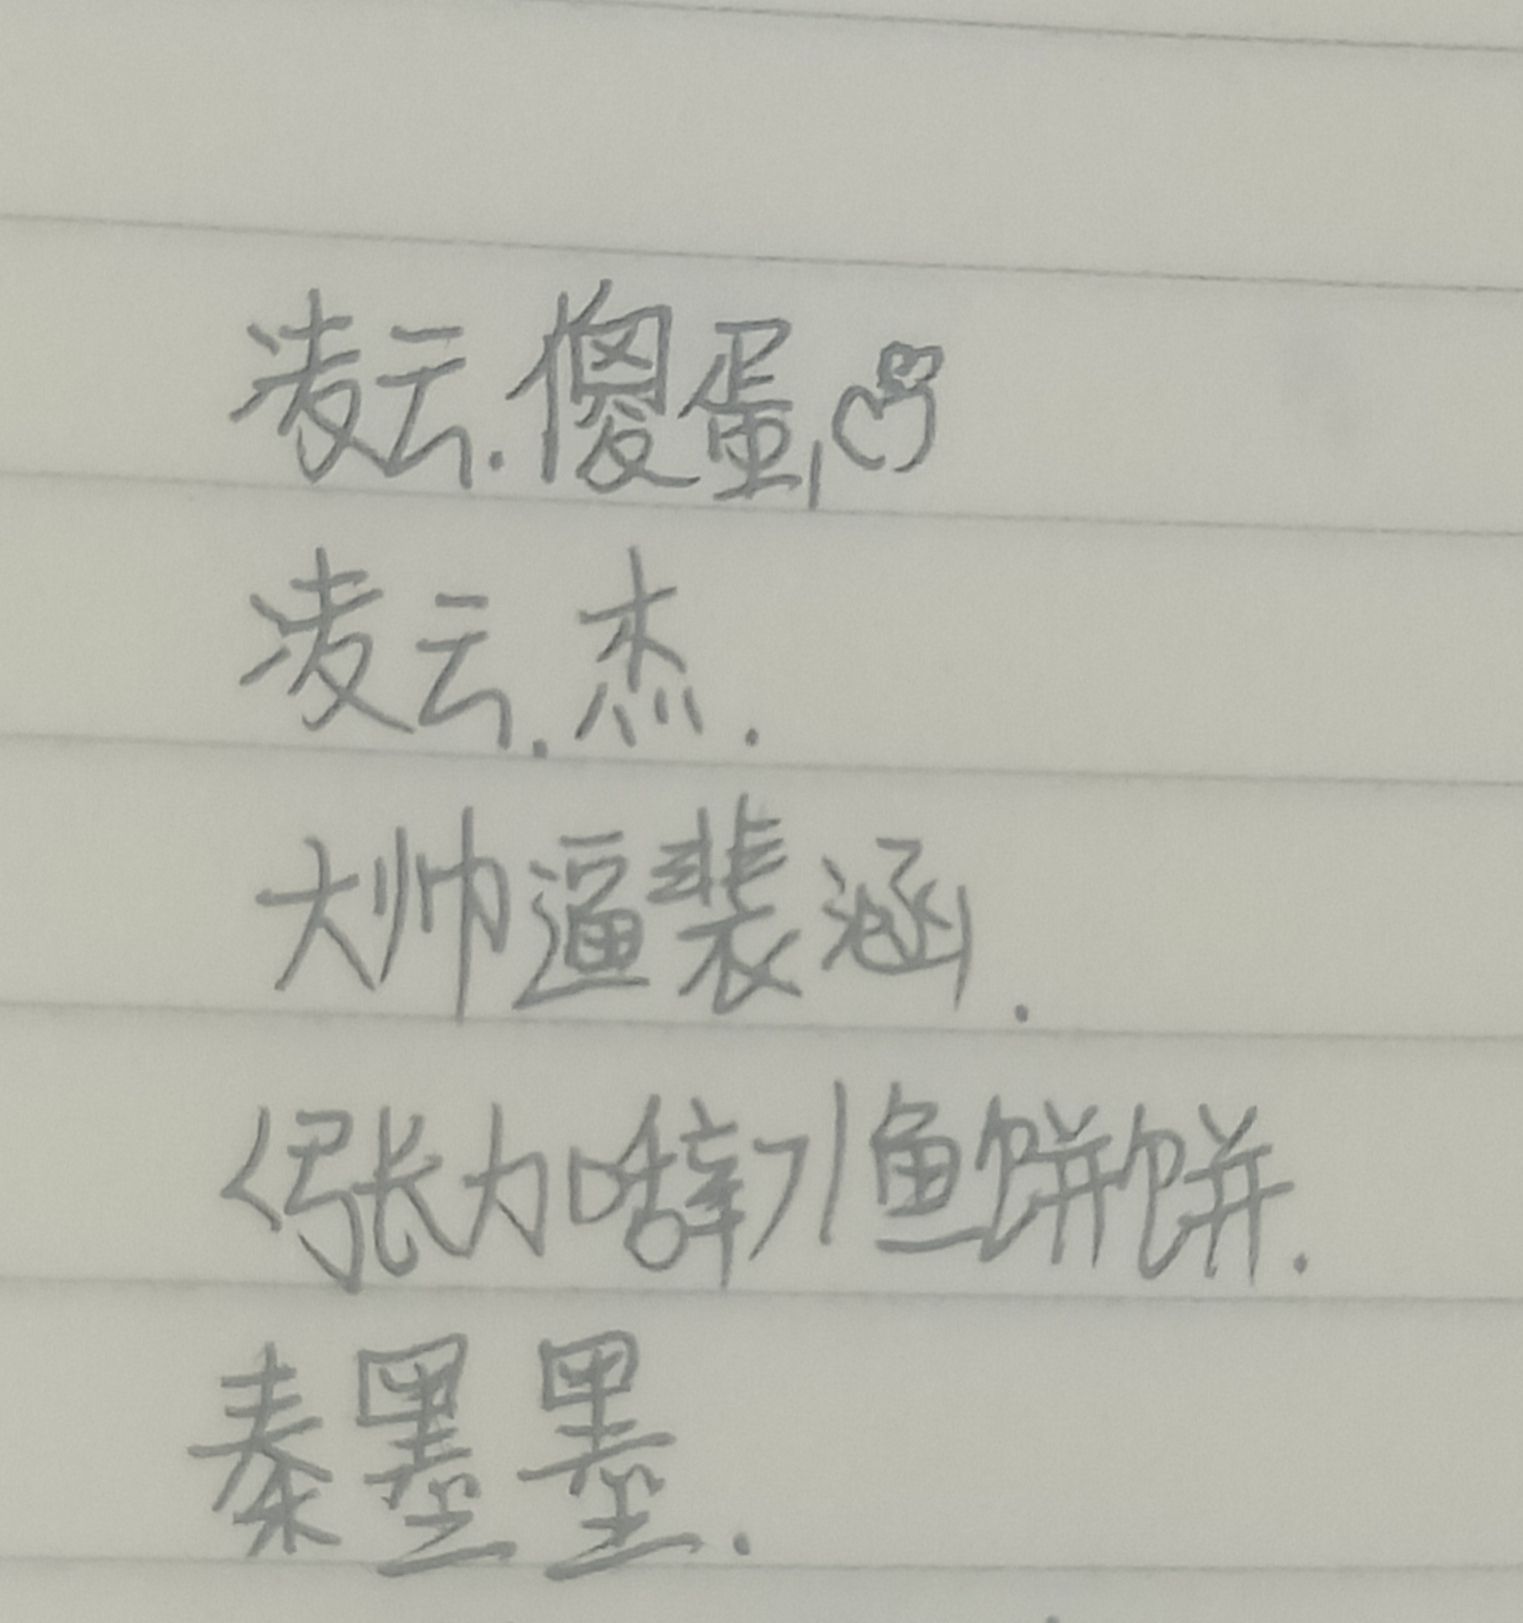 凌云.傻蛋,
凌云.杰.
大帅逼裴涵.
张力鱼饼饼.
秦墨墨.